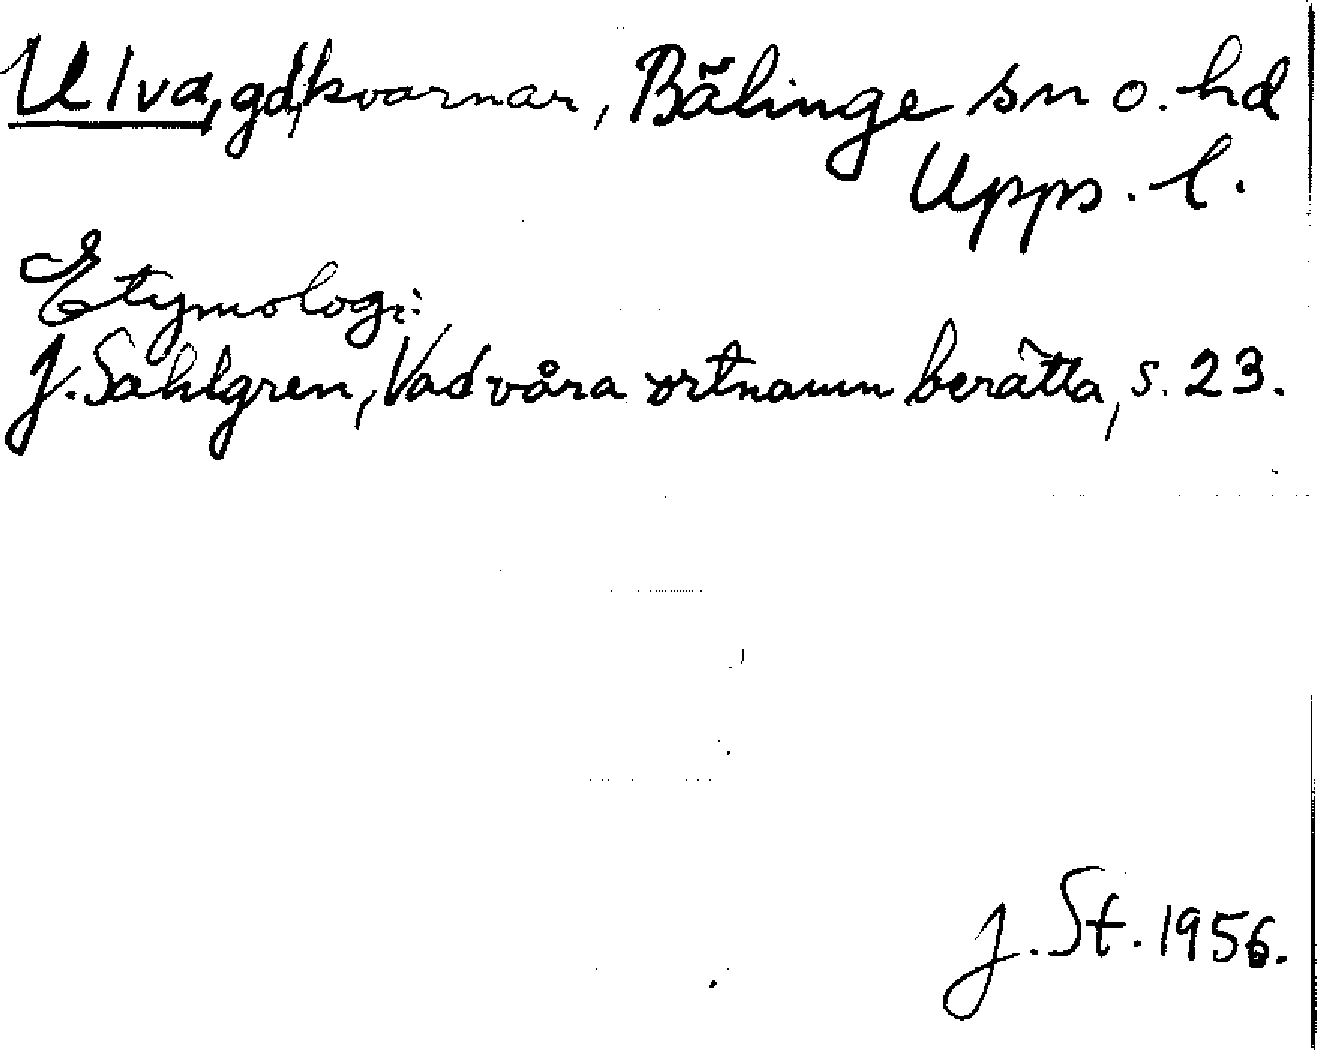 Ulva, gd, kvarnar, Bälinge sn o. hd
Upps. l.
Etymologi:
J. Sahlgren, Vad våra ortnamn berätta, s. 23.
J. St. 1956.